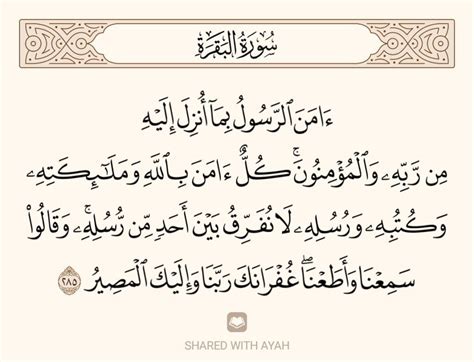 سُورَةُ البَقَرَةِ
ءَامَنَ ٱلرَّسُولُ بِمَآ أُنزِلَ إِلَيْهِ
مِن رَّبِّهِۦ وَٱلْمُؤْمِنُونَۚ كُلٌّ ءَامَنَ بِٱللَّهِ وَمَلَـٰٓئِكَتِهِۦ
وَكُتُبِهِۦ وَرُسُلِهِۦ لَا نُفَرِّقُ بَيْنَ أَحَدٍ مِّن رُّسُلِهِۦۚ وَقَالُوا۟
سَمِعْنَا وَأَطَعْنَاۖ غُفْرَانَكَ رَبَّنَا وَإِلَيْكَ ٱلْمَصِيرُ ٢٨٥
SHARED WITH AYAH